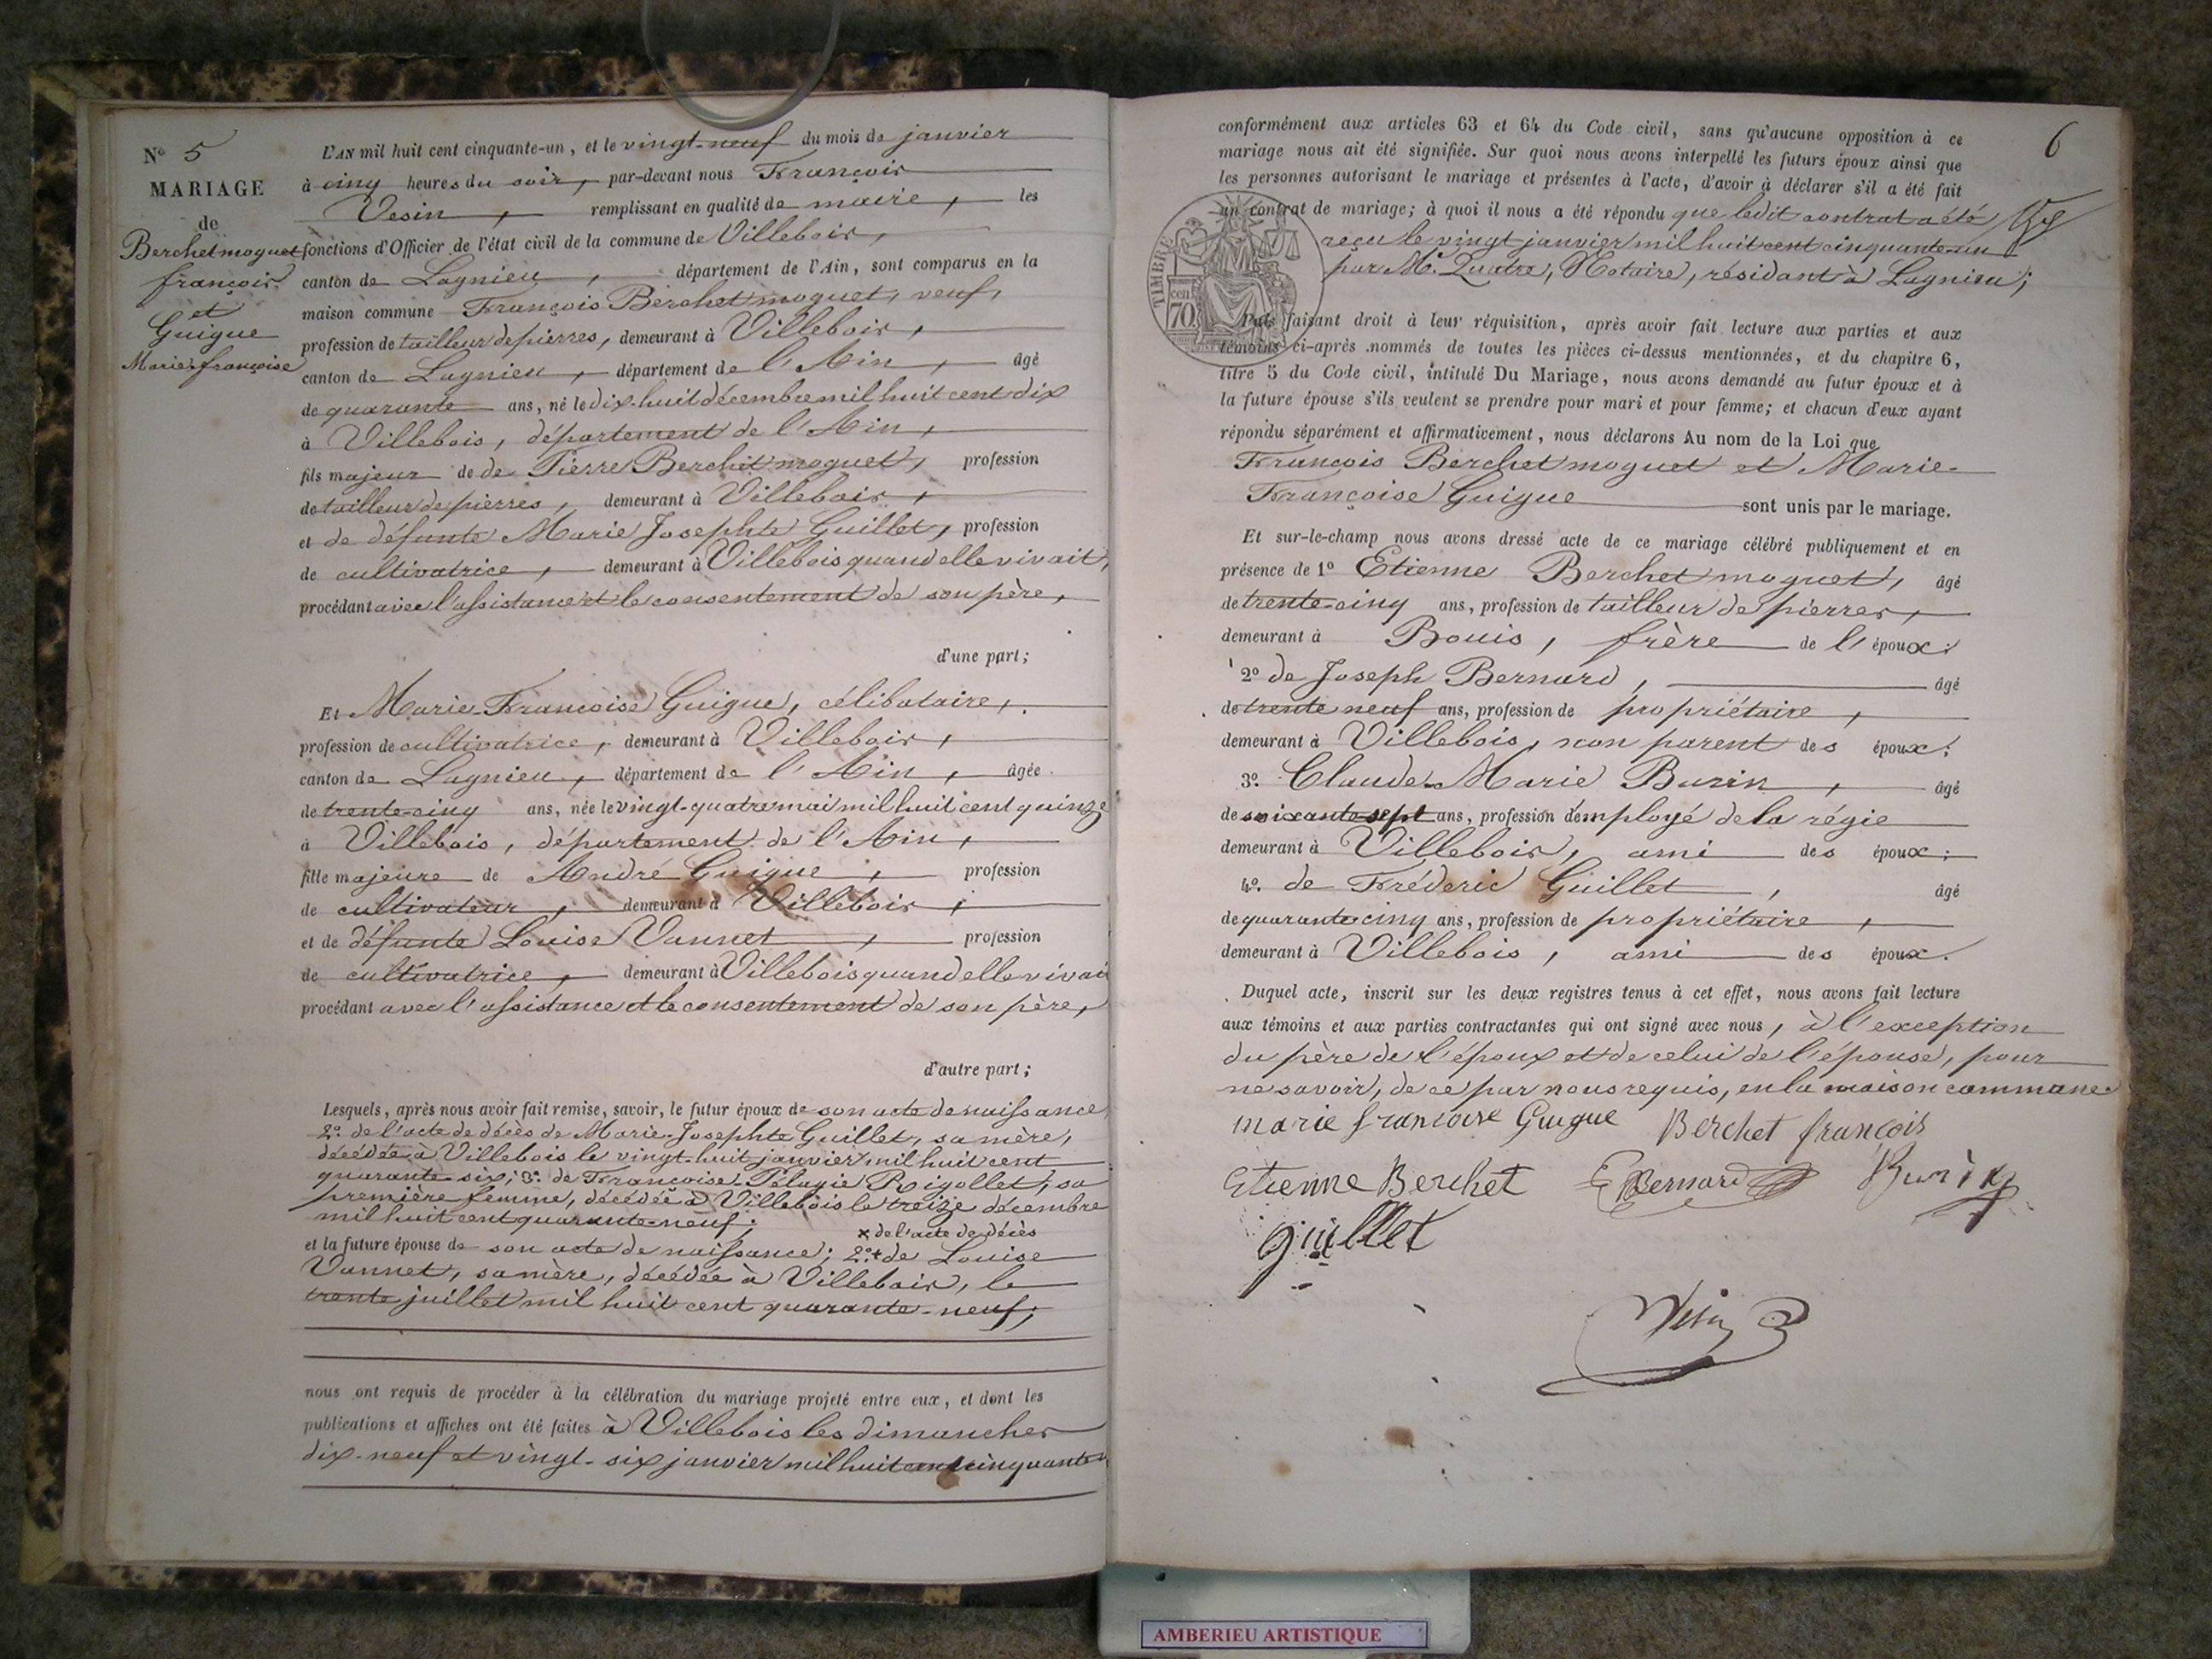 N° 5
MARIAGE
de
Berchet moguet
françois
et
Guigue
Marie françoise
L'AN mil huit cent cinquante-un, et le vingt-neuf du mois de janvier
à cinq heures du soir, par-devant nous François
Vesin, remplissant en qualité de maire, les
fonctions d'Officier de l'état civil de la commune de Villebois,
canton de Lagnieu, département de l'Ain, sont comparus en la
maison commune François Berchet moguet, veuf,
profession de tailleur de pierres, demeurant à Villebois,
canton de Lagnieu, département de l'Ain, âgé
de quarante ans, né le dix-huit décembre mil huit cent dix
à Villebois, département de l'Ain,
fils majeur de de Pierre Berchet moguet, profession
de tailleur de pierres, demeurant à Villebois,
et de défunte Marie Josephte Guillet, profession
de cultivatrice, demeurant à Villebois quand elle vivait,
procédant avec l'assistance et le consentement de son père,
d'une part;
Et Marie-Françoise Guigue, célibataire,
profession de cultivatrice, demeurant à Villebois,
canton de Lagnieu, département de l'Ain, âgée
de trente-cinq ans, née le vingt-quatre mai mil huit cent quinze
à Villebois, département de l'Ain,
fille majeure de André Guigue, profession
de cultivateur, demeurant à Villebois,
et de défunte Louise Vannet, profession
de cultivatrice, demeurant à Villebois quand elle vivai
procédant avec l'assistance et le consentement de son père,
d'autre part;
Lesquels, après nous avoir fait remise, savoir, le futur époux de son acte de naissance
2° de l'acte de décès de Marie-Josephte Guillet, sa mère,
décédée à Villebois le vingt-huit janvier mil huit cent
quarante-six; 3° de Françoise-Pélagie Rigollet, sa
première femme, décédée à Villebois le treize décembre
mil huit cent quarante-neuf;
x de l'acte de décès
et la future épouse de son acte de naissance; 2° x de Louise
Vannet, sa mère, décédée à Villebois, le
trente juillet mil huit cent quarante-neuf;
nous ont requis de procéder à la célébration du mariage projeté entre eux, et dont les
publications et affiches ont été faites à Villebois les dimanches
dix-neuf et vingt-six janvier mil huit cent cinquante
6
conformément aux articles 63 et 64 du Code civil, sans qu'aucune opposition à ce
mariage nous ait été signifiée. Sur quoi nous avons interpellé les futurs époux ainsi que
les personnes autorisant le mariage et présentes à l'acte, d'avoir à déclarer s'il a été fait
un contrat de mariage; à quoi il nous a été répondu que ledit contrat a été
reçu le vingt janvier mil huit cent cinquante-un
par Me. Quatre, Notaire, résidant à Lagnieu;
TIMBRE
cen.
70
Puis faisant droit à leur réquisition, après avoir fait lecture aux parties et aux
témoins ci-après nommés de toutes les pièces ci-dessus mentionnées, et du chapitre 6,
titre 5 du Code civil, intitulé Du Mariage, nous avons demandé au futur époux et à
la future épouse s'ils veulent se prendre pour mari et pour femme; et chacun d'eux ayant
répondu séparément et affirmativement, nous déclarons Au nom de la Loi que
François Berchet moguet et Marie-
Françoise Guigue sont unis par le mariage.
Et sur-le-champ nous avons dressé acte de ce mariage célébré publiquement et en
présence de 1° Etienne Berchet moguet, âgé
de trente-cinq ans, profession de tailleur de pierres,
demeurant à Bouis, frère de l'époux;
2° de Joseph Bernard, âgé
de trente neuf ans, profession de propriétaire,
demeurant à Villebois, non parent des époux;
3° Claude-Marie Burin, âgé
de soixante sept ans, profession d'employé de la régie
demeurant à Villebois, ami des époux;
4° de Fréderic Guillet, âgé
de quarante cinq ans, profession de propriétaire,
demeurant à Villebois, ami des époux.
Duquel acte, inscrit sur les deux registres tenus à cet effet, nous avons fait lecture
aux témoins et aux parties contractantes qui ont signé avec nous, à l'exception
du père de l'époux et de celui de l'épouse, pour
ne savoir, de ce par nous requis, en la maison commune
marie francoise Guigue Berchet françois
Etienne Berchet Bernard Burin
guillet
Vesin
AMBERIEU ARTISTIQUE